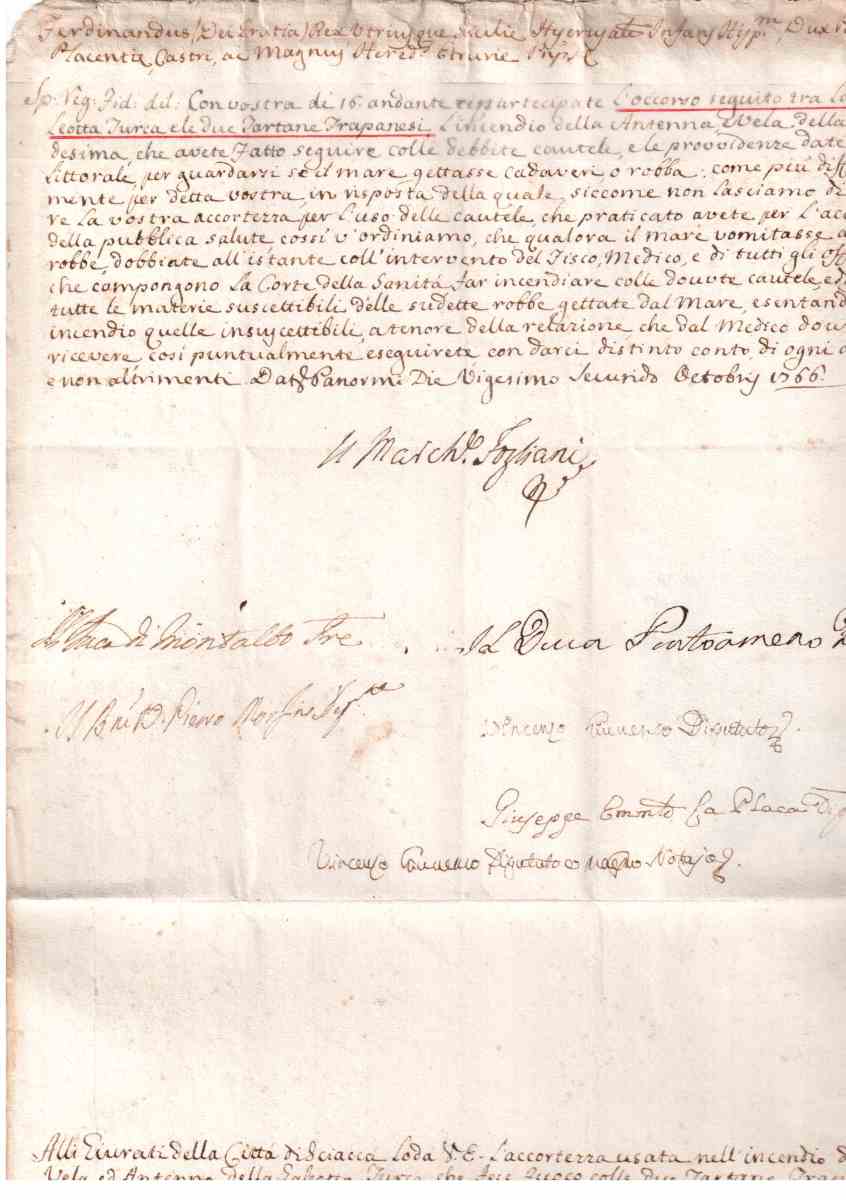 Ferdinandus Dei Gratia Rex Utriusque Sicilie Hyerusale Infans Hisp.m Dux
Placentie, Castri, ac Magnus Hered.s Etrurie
Sp: Reg: Fid: dil: Con vostra di 16. andante ci partecipate L'occorso seguito tra La
Leotta Turca e le due Tartane Trapanesi L'incendio della Antenna, e Vela della
desima, che avete Fatto seguire colle debbite cautele, e le providenze date
Littorale, per guardarsi se il mare gettasse cadaveri, o robba: come più diff
mente per detta vostra, in risposta della quale, siccome non lasciamo di
re La vostra accortezza per L'uso delle cautele, che praticato avete, per L'acc
della pubblica salute cossì v'ordiniamo, che qualora il mare vomitasse
robbe, dobbiate all'istante coll'intervento del Fisco, Medico, e di tutti gli off
che compongono La Corte della Sanità far incendiare colle dovute cautele, e di
tutte le materie suscettibili delle sudette robbe gettate dal mare, esentand
incendio quelle insuscettibili, a tenore della relazione che dal Medico dov
ricevere cosi puntualmente eseguirete con darci distinto conto, di ogni
e non altrimenti Dat. Panormi Die Vigesimo Secundo Octobris 1766.
Il March.e Fogliani
di Montalbo
Il Duca
D. Pietro
Vincenzo Deputato
Giuseppe La Placa
Vincenzo Deputato Notajo
Alli Giurati della Città di Sciacca Loda V.E. L'accortezza usata nell'incendio d
Vela ed Antenna della Galeotta Turca che fece fuoco colle due Tartane Trap